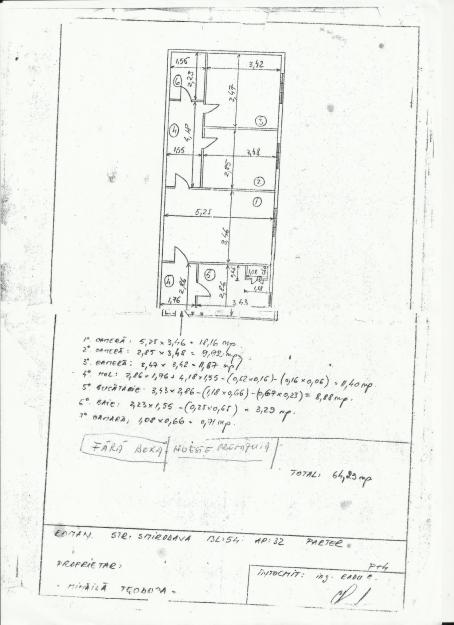 1,55
3,42
2,23
6
3,47
3
4
4,18
1,55
3,48
2,85
2
1
5,25
3,46
4
5
2,86
2,86
1,08
1,18
1,76
3,43
1° CAMERĂ: 5,25 x 3,46 = 18,16 mp.
2° CAMERĂ: 2,85 x 3,48 = 9,92 mp.
3° CAMERĂ: 3,42 = mp
4° HOL: 2,86 x 1,76 + 4,18 x 1,55 - (0,62 x 0,16) - (0,16 x 0,06) = 8,40 mp
5° BUCĂTĂRIE: 3,43 x 2,86 - (1,18 x 0,66) - (0,67 x 0,23) = 8,88 mp.
6° BAIE: 2,23 x 1,55 - (0,25 x 0,65) = 3,29 mp.
7° CĂMARĂ: 1,08 x 0,66 = 0,71 mp.
FĂRĂ BOXA
TOTAL: mp
ROMAN. STR. SMIRODAVA BL: 54 AP: 32 PARTER.
P+4
PROPRIETAR:
ÎNTOCMIT: ing. RADU
- MIHĂILĂ TEODORA -